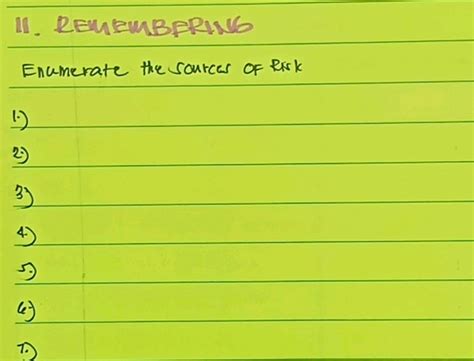 II. REMEMBERING
Enumerate the sources of Risk
1.)
2.)
3.)
4.)
5.)
6.)
7.)